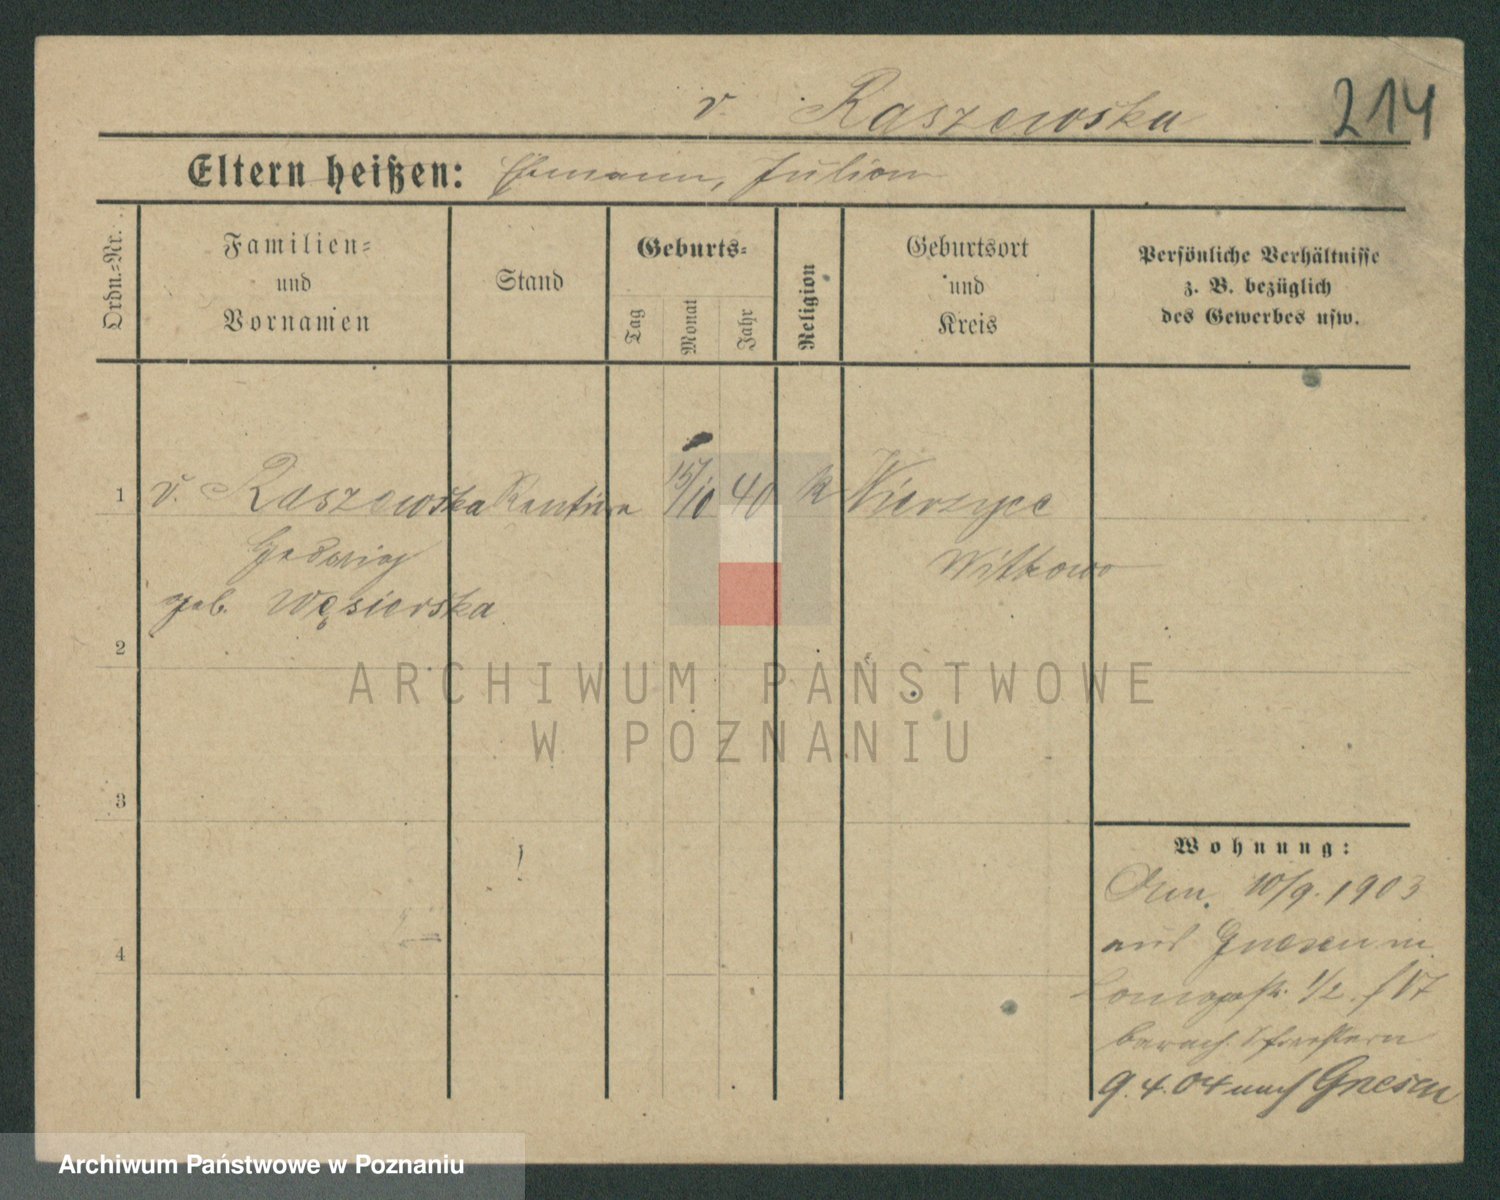 214
v. Raszewska
Eltern heißen: Ehmann, Julian
Ordn.=Nr.
Familien=
und
Vornamen
Stand
Geburts=
Tag
Monat
Jahr
Religion
Geburtsort
und
Kreis
Persönliche Verhältnisse
z. B. bezüglich
des Gewerbes usw.
1 v. Raszewska Rentière 15/10 40 K Wierzyce
Hedwig Witkowo
geb. Węsierska
2
3
4
Wohnung:
10/9. 1903
aus Gnesen in
1/2. f 17
9. 4. 04 nach Gnesen
ARCHIWUM PAŃSTWOWE
W POZNANIU
Archiwum Państwowe w Poznaniu